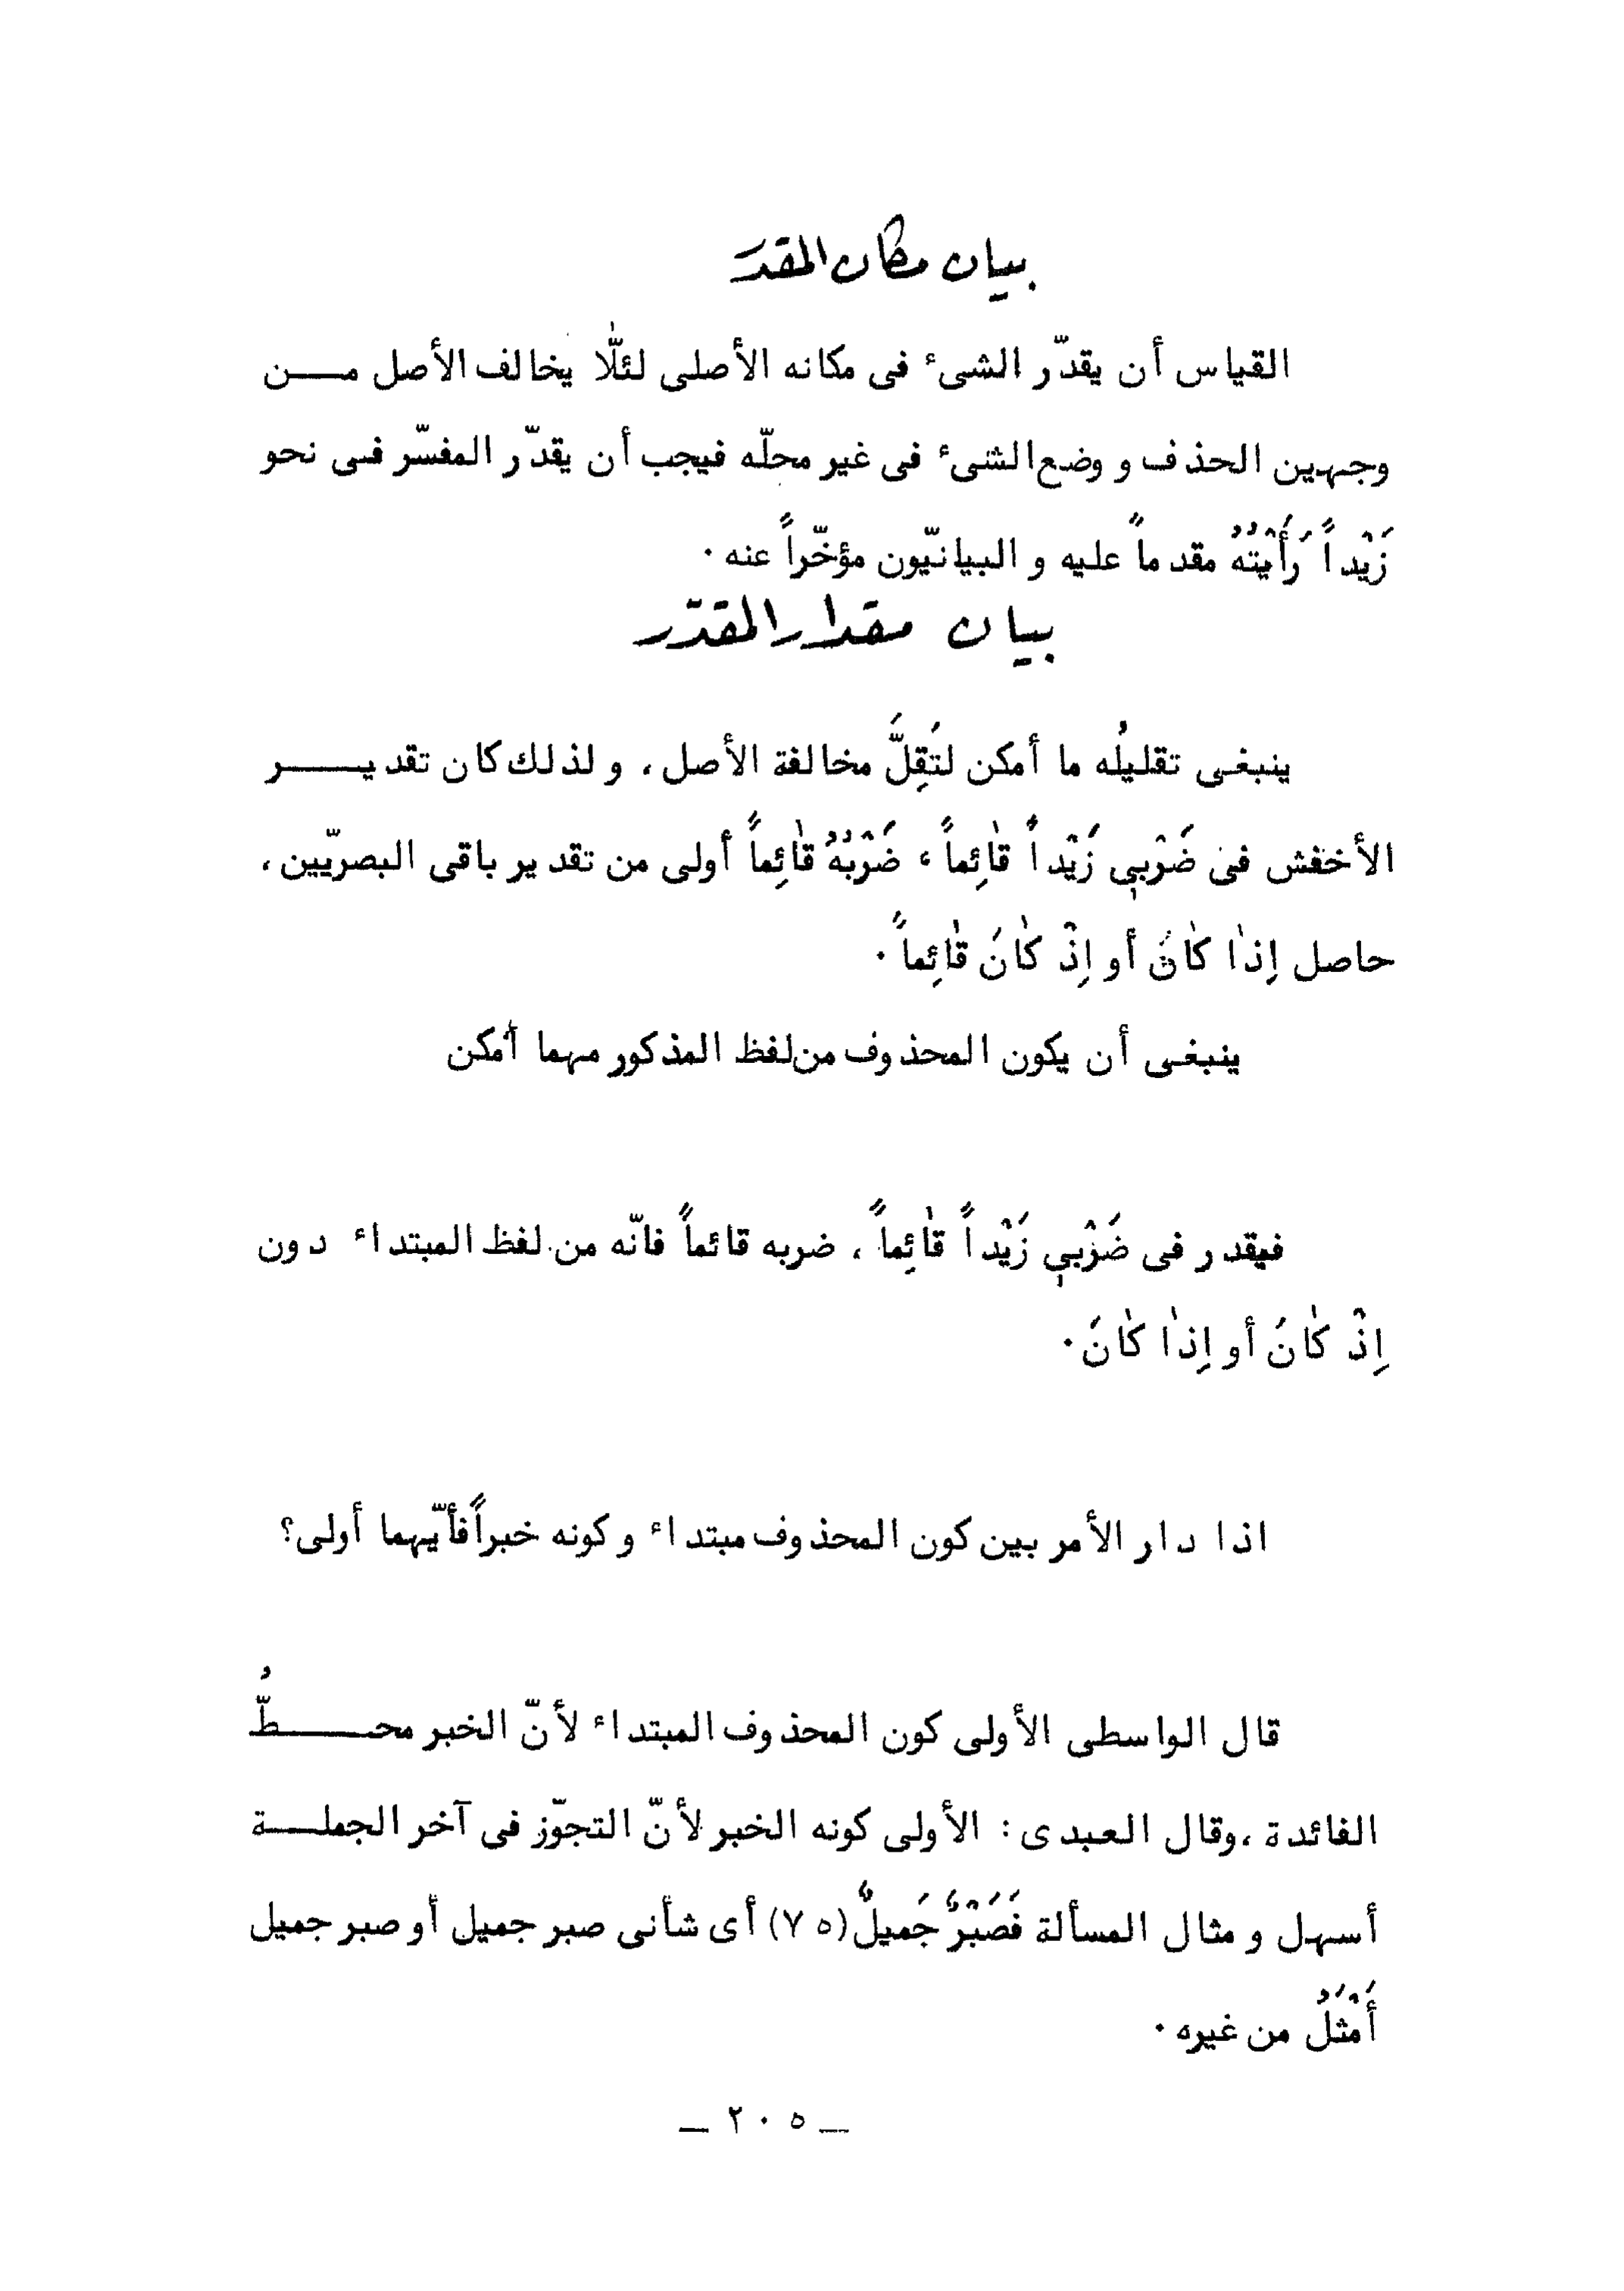 بيان مكان المقدَر
القياس أن يقدّر الشىء فى مكانه الأصلى لئلّا يخالف الأصل مـــن
وجهين الحذف و وضع الشىء فى غير محلّه فيجب أن يقدّر المفسّر فى نحو
زَيْداً رَأَيْتُهُ مقدماً عليه و البيانيّون مؤخّراً عنه ٠
بيان مقدار المقدّر
ينبغى تقليلُه ما أمكن لتَقِلَّ مخالفة الأصل ، و لذلك كان تقديـــــر
الأخفش فى ضَرْبي زَيْداً قائِماً ، ضَرْبُهُ قائِماً أولى من تقدير باقى البصريّين ،
حاصل إذا كانَ أو إِذْ كانَ قائِماً ٠
ينبغى أن يكون المحذوف من لفظ المذكور مهما أمكن
فيقدر فى ضَرْبي زَيْداً قائِماً ، ضربه قائماً فانّه من لفظ المبتداء دون
إِذْ كانَ أو إِذا كانَ ٠
اذا دار الأمر بين كون المحذوف مبتداء و كونه خبراً فأيّهما أولى؟
قال الواسطى الأولى كون المحذوف المبتداء لأنّ الخبر محـــــطُّ
الفائدة ،وقال العبدى : الأولى كونه الخبر لأنّ التجوّز فى آخر الجملـــة
أسهل و مثال المسألة فَصَبْرٌ جَميلٌ (٧٥) أى شأنى صبر جميل أو صبر جميل
أَمْثَلُ من غيره ٠
— ٢٠٥ —